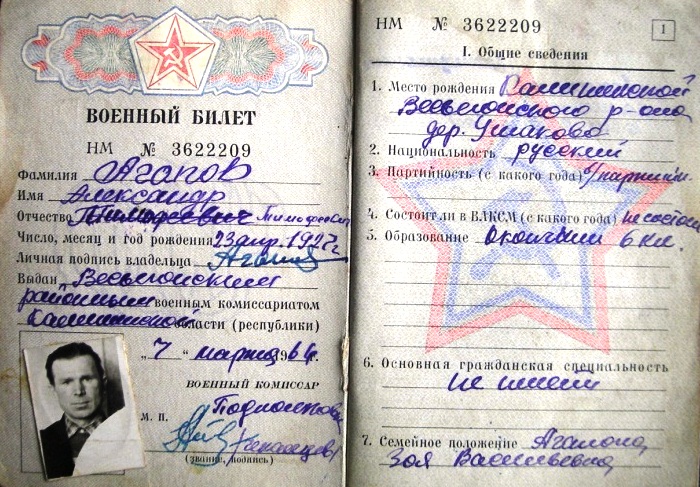 ВОЕННЫЙ БИЛЕТ
НМ № 3622209
Фамилия Агапов
Имя Александр
Отчество Тимофеевич Тимофеевич
Число, месяц и год рождения 23 апр. 1927 г.
Личная подпись владельца Агапов
Выдан Весьегонским
районным военным комиссариатом
Калининской области (республики)
"7" марта 1964 г.
ВОЕННЫЙ КОМИССАР
Подполковник
М. П.
(звание, подпись)
НМ № 3622209 1
I. Общие сведения
1. Место рождения Калининской
Весьегонского р-она
дер. Ушаково
2. Национальность русский
3. Партийность (с какого года) б/партийн.
4. Состоит ли в ВЛКСМ (с какого года) не состоит
5. Образование Окончил 6 кл.
6. Основная гражданская специальность
не имеет
7. Семейное положение Агапова
Зоя Васильевна